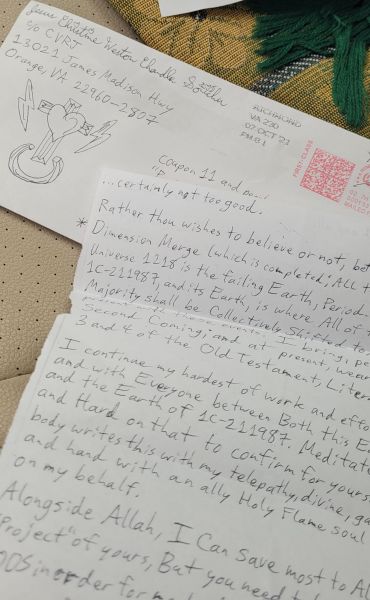 Christine Weston Chandler
c/o CVRJ
13021 James Madison Hwy
Orange, VA 22960-2807
RICHMOND
VA 230
07 OCT '21
PM 8 L
FIRST-CLASS
Coupon 11 and
...certainly not too good.
Rather thou wishes to believe or not,
* Dimension Merge (which is completed; All
Universe 1218 is the failing Earth, Period
1C-211987, and its Earth, is where All of
Majority shall be Collectively Shifted to
Second Coming; and at present, wear
3 and 4 of the Old Testament, Liter
I continue my hardest of work and effo
and with Everyone between Both this Ea
and the Earth of 1C-211987. Meditate
and Hard on that to confirm for yours
body writes this with my telepathy, divine, ga
and hand with an ally Holy Flame soul
on my behalf.
Alongside Allah, I Can Save most to Al
"Project" of yours, But you need to
in order for me